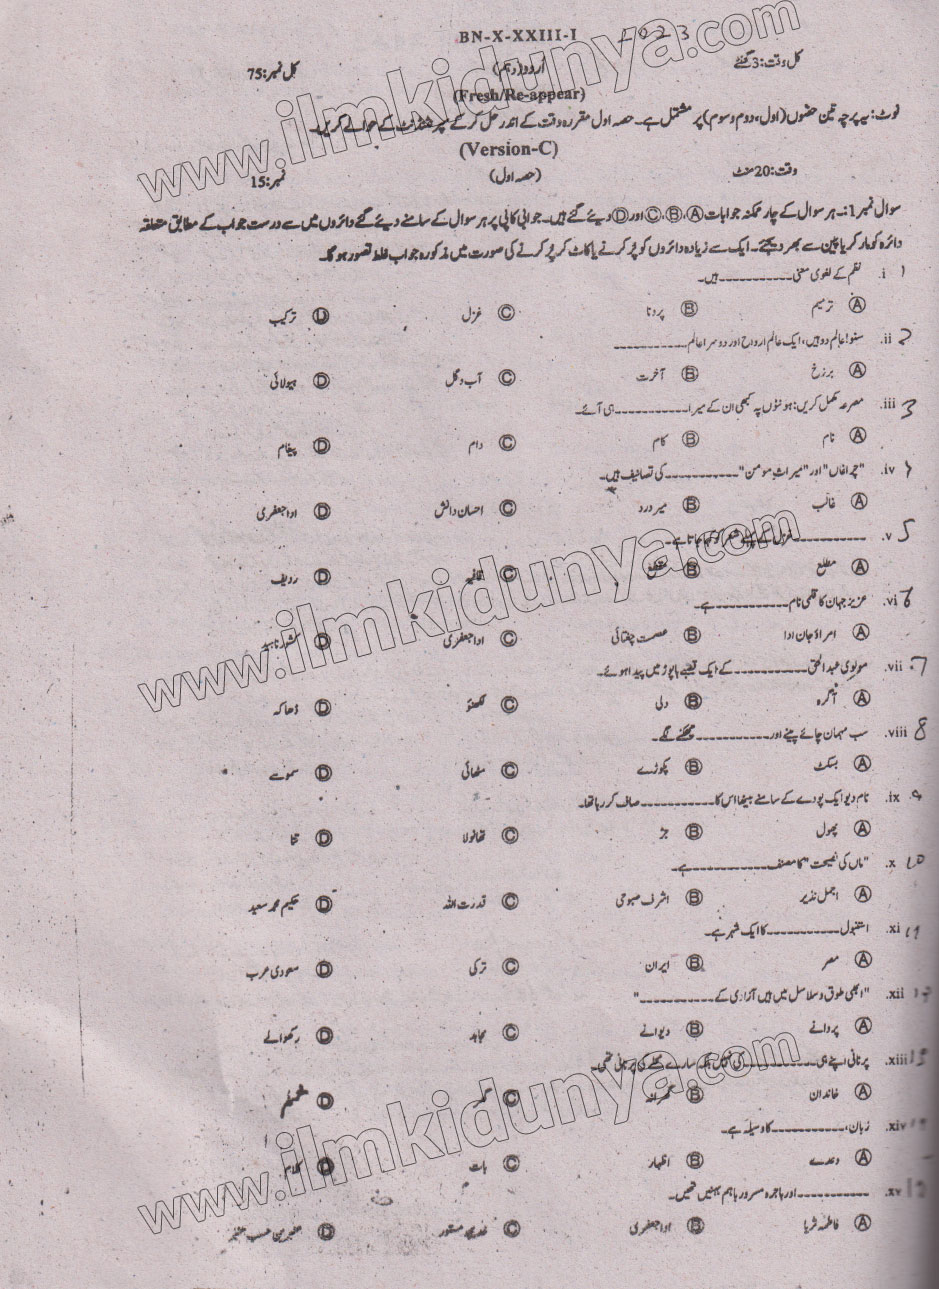 BN-X-XXIII-I 2023
کل وقت:3 گھنٹے اُردو (دہم) کل نمبر:75
(Fresh/Re-appear)
نوٹ: یہ پرچہ تین حصّوں (اول، دوم و سوم) پر مشتمل ہے۔ حصہ اول مقررہ وقت کے اندر حل کر کے سپرنٹنڈنٹ کے حوالے کریں۔
(Version-C)
وقت:20منٹ (حصہ اول) نمبر:15
سوال نمبر1:۔ ہر سوال کے چار ممکنہ جوابات Ⓐ،Ⓑ،Ⓒ اور Ⓓ دیئے گئے ہیں۔ جوابی کاپی پر ہر سوال کے سامنے دیئے گئے دائروں میں سے درست جواب کے مطابق متعلقہ
دائرہ کو مارکر یا پین سے بھر دیجئے۔ ایک سے زیادہ دائروں کو پُر کرنے یا کاٹ کر پُر کرنے کی صورت میں مذکورہ جواب غلط تصور ہوگا۔
1 i. نظم کے لغوی معنی ----------- ہیں۔
Ⓐ ترمیم Ⓑ پرونا Ⓒ غزل Ⓓ ترکیب
2 ii. سنو! عالم دو ہیں، ایک عالم ارواح اور دوسرا عالم -----------
Ⓐ برزخ Ⓑ آخرت Ⓒ آب و گل Ⓓ ہیولائی
3 iii. مصرعہ مکمل کریں: ہونٹوں پہ کبھی ان کے میرا ----------- ہی آئے۔
Ⓐ نام Ⓑ کام Ⓒ دام Ⓓ پیغام
iv. "چراغاں" اور "میراث مومن" ----------- کی تصانیف ہیں۔
Ⓐ غالب Ⓑ میر درد Ⓒ احسان دانش Ⓓ ادا جعفری
5 v. ----------- غزل کے پہلے شعر کو کہا جاتا ہے۔
Ⓐ مطلع Ⓑ مقطع Ⓒ قافیہ Ⓓ ردیف
6 vi. عزیز جہان کا قلمی نام ----------- ہے۔
Ⓐ امراؤ جان ادا Ⓑ عصمت چغتائی Ⓒ ادا جعفری Ⓓ کشور ناہید
7 vii. مولوی عبدالحق ----------- کے ایک قصبے ہاپوڑ میں پیدا ہوئے۔
Ⓐ آگرہ Ⓑ دلی Ⓒ لکھنؤ Ⓓ ڈھاکہ
8 viii. سب مہمان چائے پینے اور ----------- چکھنے لگے۔
Ⓐ بسکٹ Ⓑ پکوڑے Ⓒ مٹھائی Ⓓ سموسے
9 ix. نام دیو ایک پودے کے سامنے بیٹھا اس کا ----------- صاف کر رہا تھا۔
Ⓐ پھول Ⓑ جڑ Ⓒ تھانولا Ⓓ تنا
10 x. "ماں کی نصیحت" کا مصنف ----------- ہے۔
Ⓐ اجمل نذیر Ⓑ اشرف صبوحی Ⓒ قدرت اللہ Ⓓ حکیم محمد سعید
11 xi. استنبول ----------- کا ایک شہر ہے۔
Ⓐ مصر Ⓑ ایران Ⓒ ترکی Ⓓ سعودی عرب
xii. "ابھی طوق و سلاسل میں ہیں آزادی کے -----------"
Ⓐ پروانے Ⓑ دیوانے Ⓒ مجاہد Ⓓ رکھوالے
xiii. پرنانی اپنے ہی ----------- کی نہیں بلکہ سارے محلے کی پرنانی تھی۔
Ⓐ خاندان Ⓑ گھرانہ Ⓒ گھر Ⓓ
xiv. زبان، ----------- کا وسیلہ ہے۔
Ⓐ وعدے Ⓑ اظہار Ⓒ بات Ⓓ کلام
xv. ----------- اور ہاجرہ مسرور باہم بہنیں تھیں۔
Ⓐ فاطمہ ثریا Ⓑ ادا جعفری Ⓒ خدیجہ مستور Ⓓ
www.ilmkidunya.com
www.ilmkidunya.com
www.ilmkidunya.com